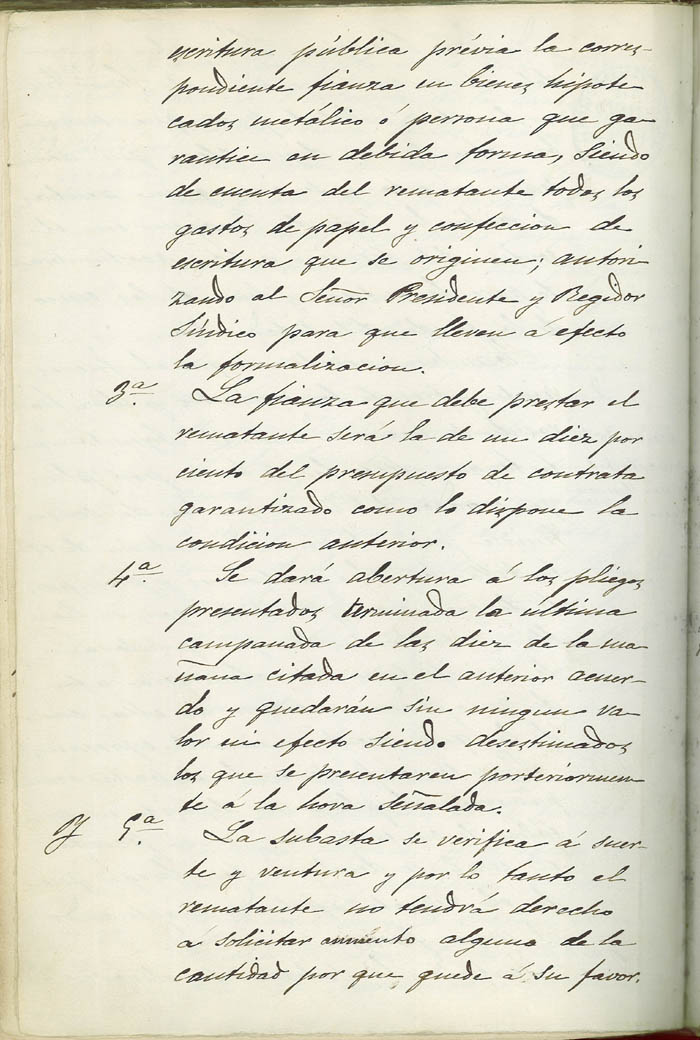 escritura pública prévia la corres-
pondiente fianza en bienes hipote
cados, metálico ó persona que ga-
rantice en debida forma, siendo
de cuenta del rematante todos los
gastos de papel y confeccion de
escritura que se originen; autori
zando al Señor Presidente y Regidor
Síndico para que lleven á efecto
la formalizacion.
3ª. La fianza que debe prestar el
rematante será la de un diez por
ciento del presupuesto de contrata
garantizado como lo dispone la
condicion anterior.
4ª. Se dará abertura á los pliegos
presentados terminada la última
campanada de las diez de la ma-
ñana citada en el anterior acuer-
do y quedarán sin ningun va-
lor ni efecto siendo desestimados
los que se presentaren posteriormen-
te á la hora señalada.
y 5ª. La subasta se verifica á suer-
te y ventura y por lo tanto el
rematante no tendrá derecho
á solicitar aumento alguno de la
cantidad por que quede á su favor.